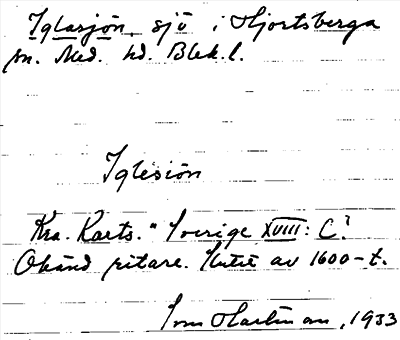 Iglasjön, sjö i Hjortsberga
sn. Med. hd. Blek. l.
Iglesiön
Kra. Karts. "Sverige XVIII: C?
Okänd ritare. Slutet av 1600-t.
Ivar Hartman, 1933